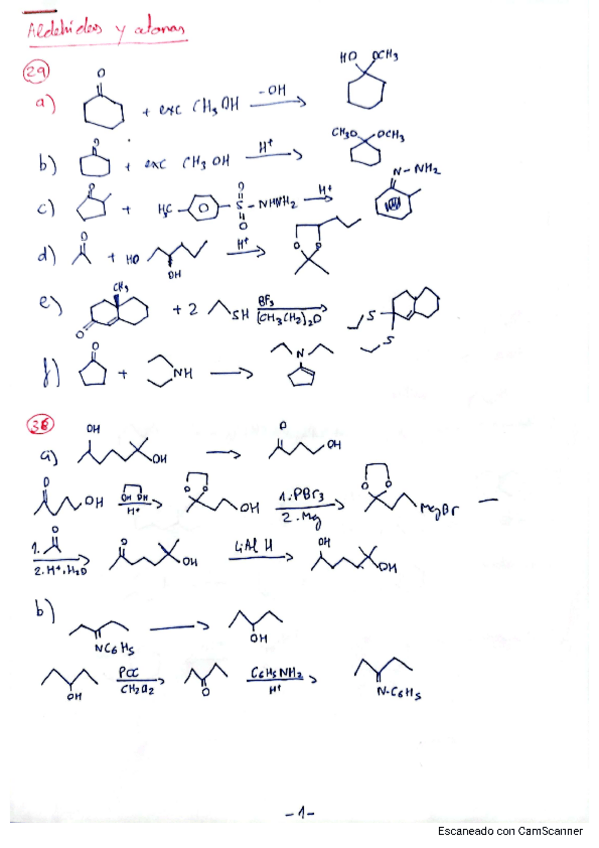 Aldehidos y cetonas
29
O
a) + exc CH3OH -OH HO OCH3
b) O + exc CH3OH H+ CH3O OCH3
c) O + H3C O S O NHNH2 H+ N-NH2
d) O + HO OH H+ O O
e) CH3 O + 2 SH BF3 (CH3CH2)2O S S
f) O + NH N
38
a) OH OH O OH
O OH OH OH H+ O O OH 1. PBr3 2. Mg O O MgBr
1. O 2. H+, H2O O OH LiAlH OH OH
b) NC6H5 OH
OH PCC CH2Cl2 O C6H5NH2 H+ N-C6H5
-1-
Escaneado con CamScanner